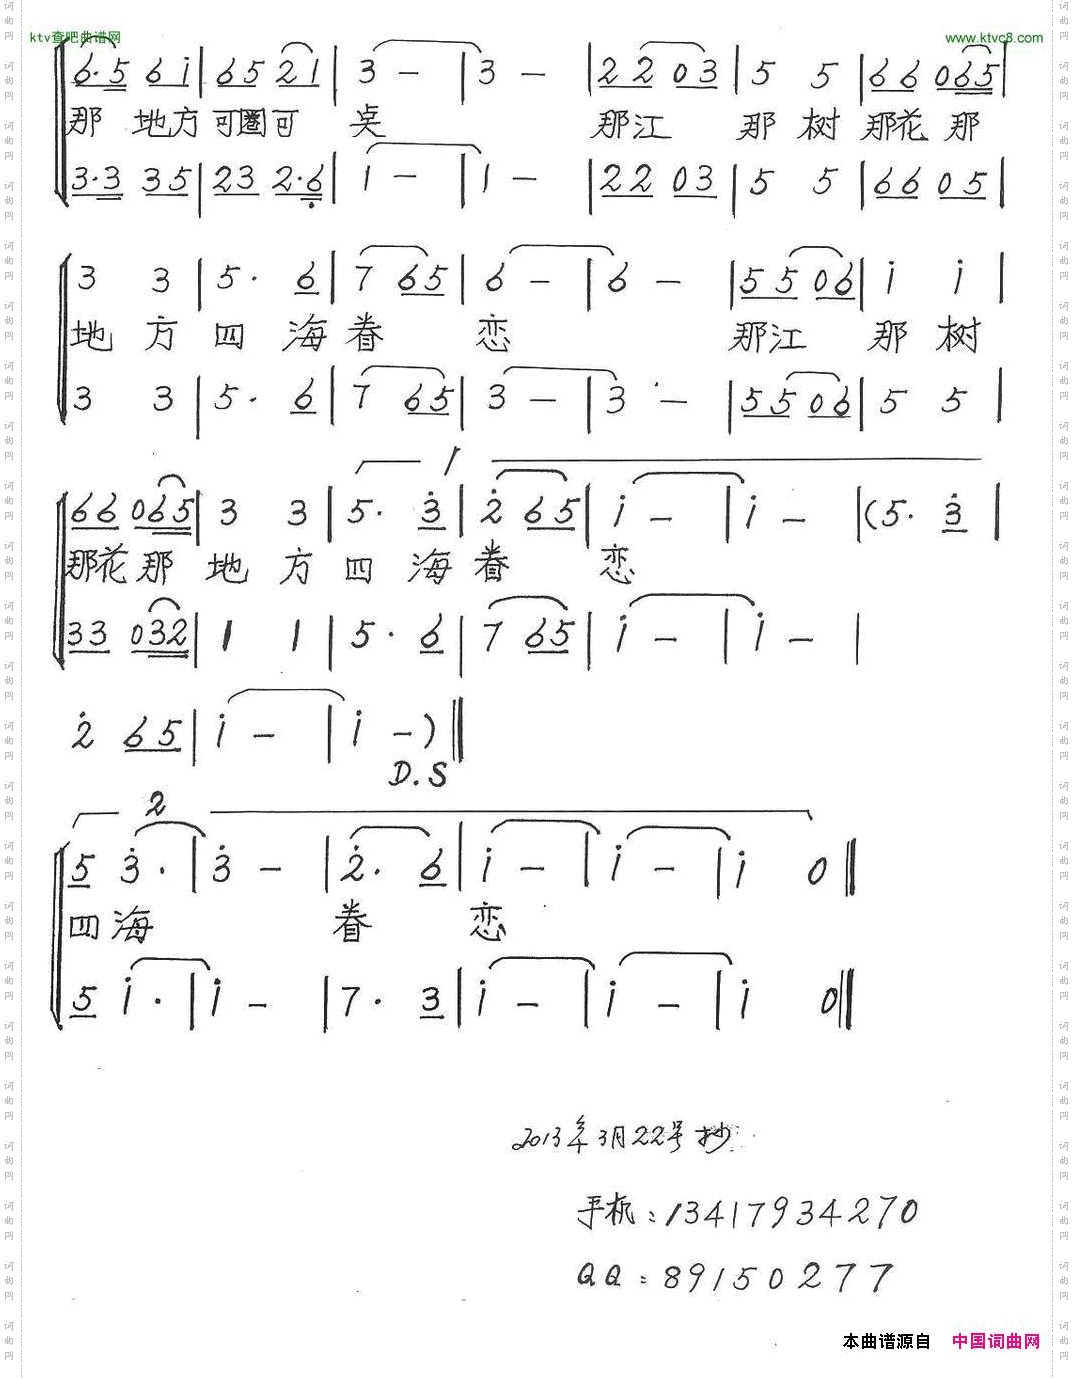 ktv查吧曲谱网 www.ktvc8.com
6·5 6i | 65 21 | 3 - | 3 - | 22 03 | 5 5 | 66 065 |
那 地方 可圈可 奌 那江 那 树 那花 那
3·3 35 | 23 2·6 | 1 - | 1 - | 22 03 | 5 5 | 66 05 |
3 3 | 5· 6 | 7 65 | 6 - | 6 - | 55 06 | i i |
地 方 四 海 眷 恋 那江 那 树
3 3 | 5· 6 | 7 65 | 3 - | 3 - | 55 06 | 5 5 |
1
66 065 | 3 3 | 5· 3 | 2 65 | i - | i - | (5· 3 |
那花 那 地 方 四 海 眷 恋
33 032 | 1 1 | 5· 6 | 7 65 | i - | i - |
2 65 | i - | i - ) ‖
D.S
2
5 3· | 3 - | 2· 6 | i - | i - | i 0 ‖
四 海 眷 恋
5 i· | i - | 7· 3 | i - | i - | i 0 ‖
2013年3月22号抄
手机:13417934270
QQ:89150277
本曲谱源自 中国词曲网